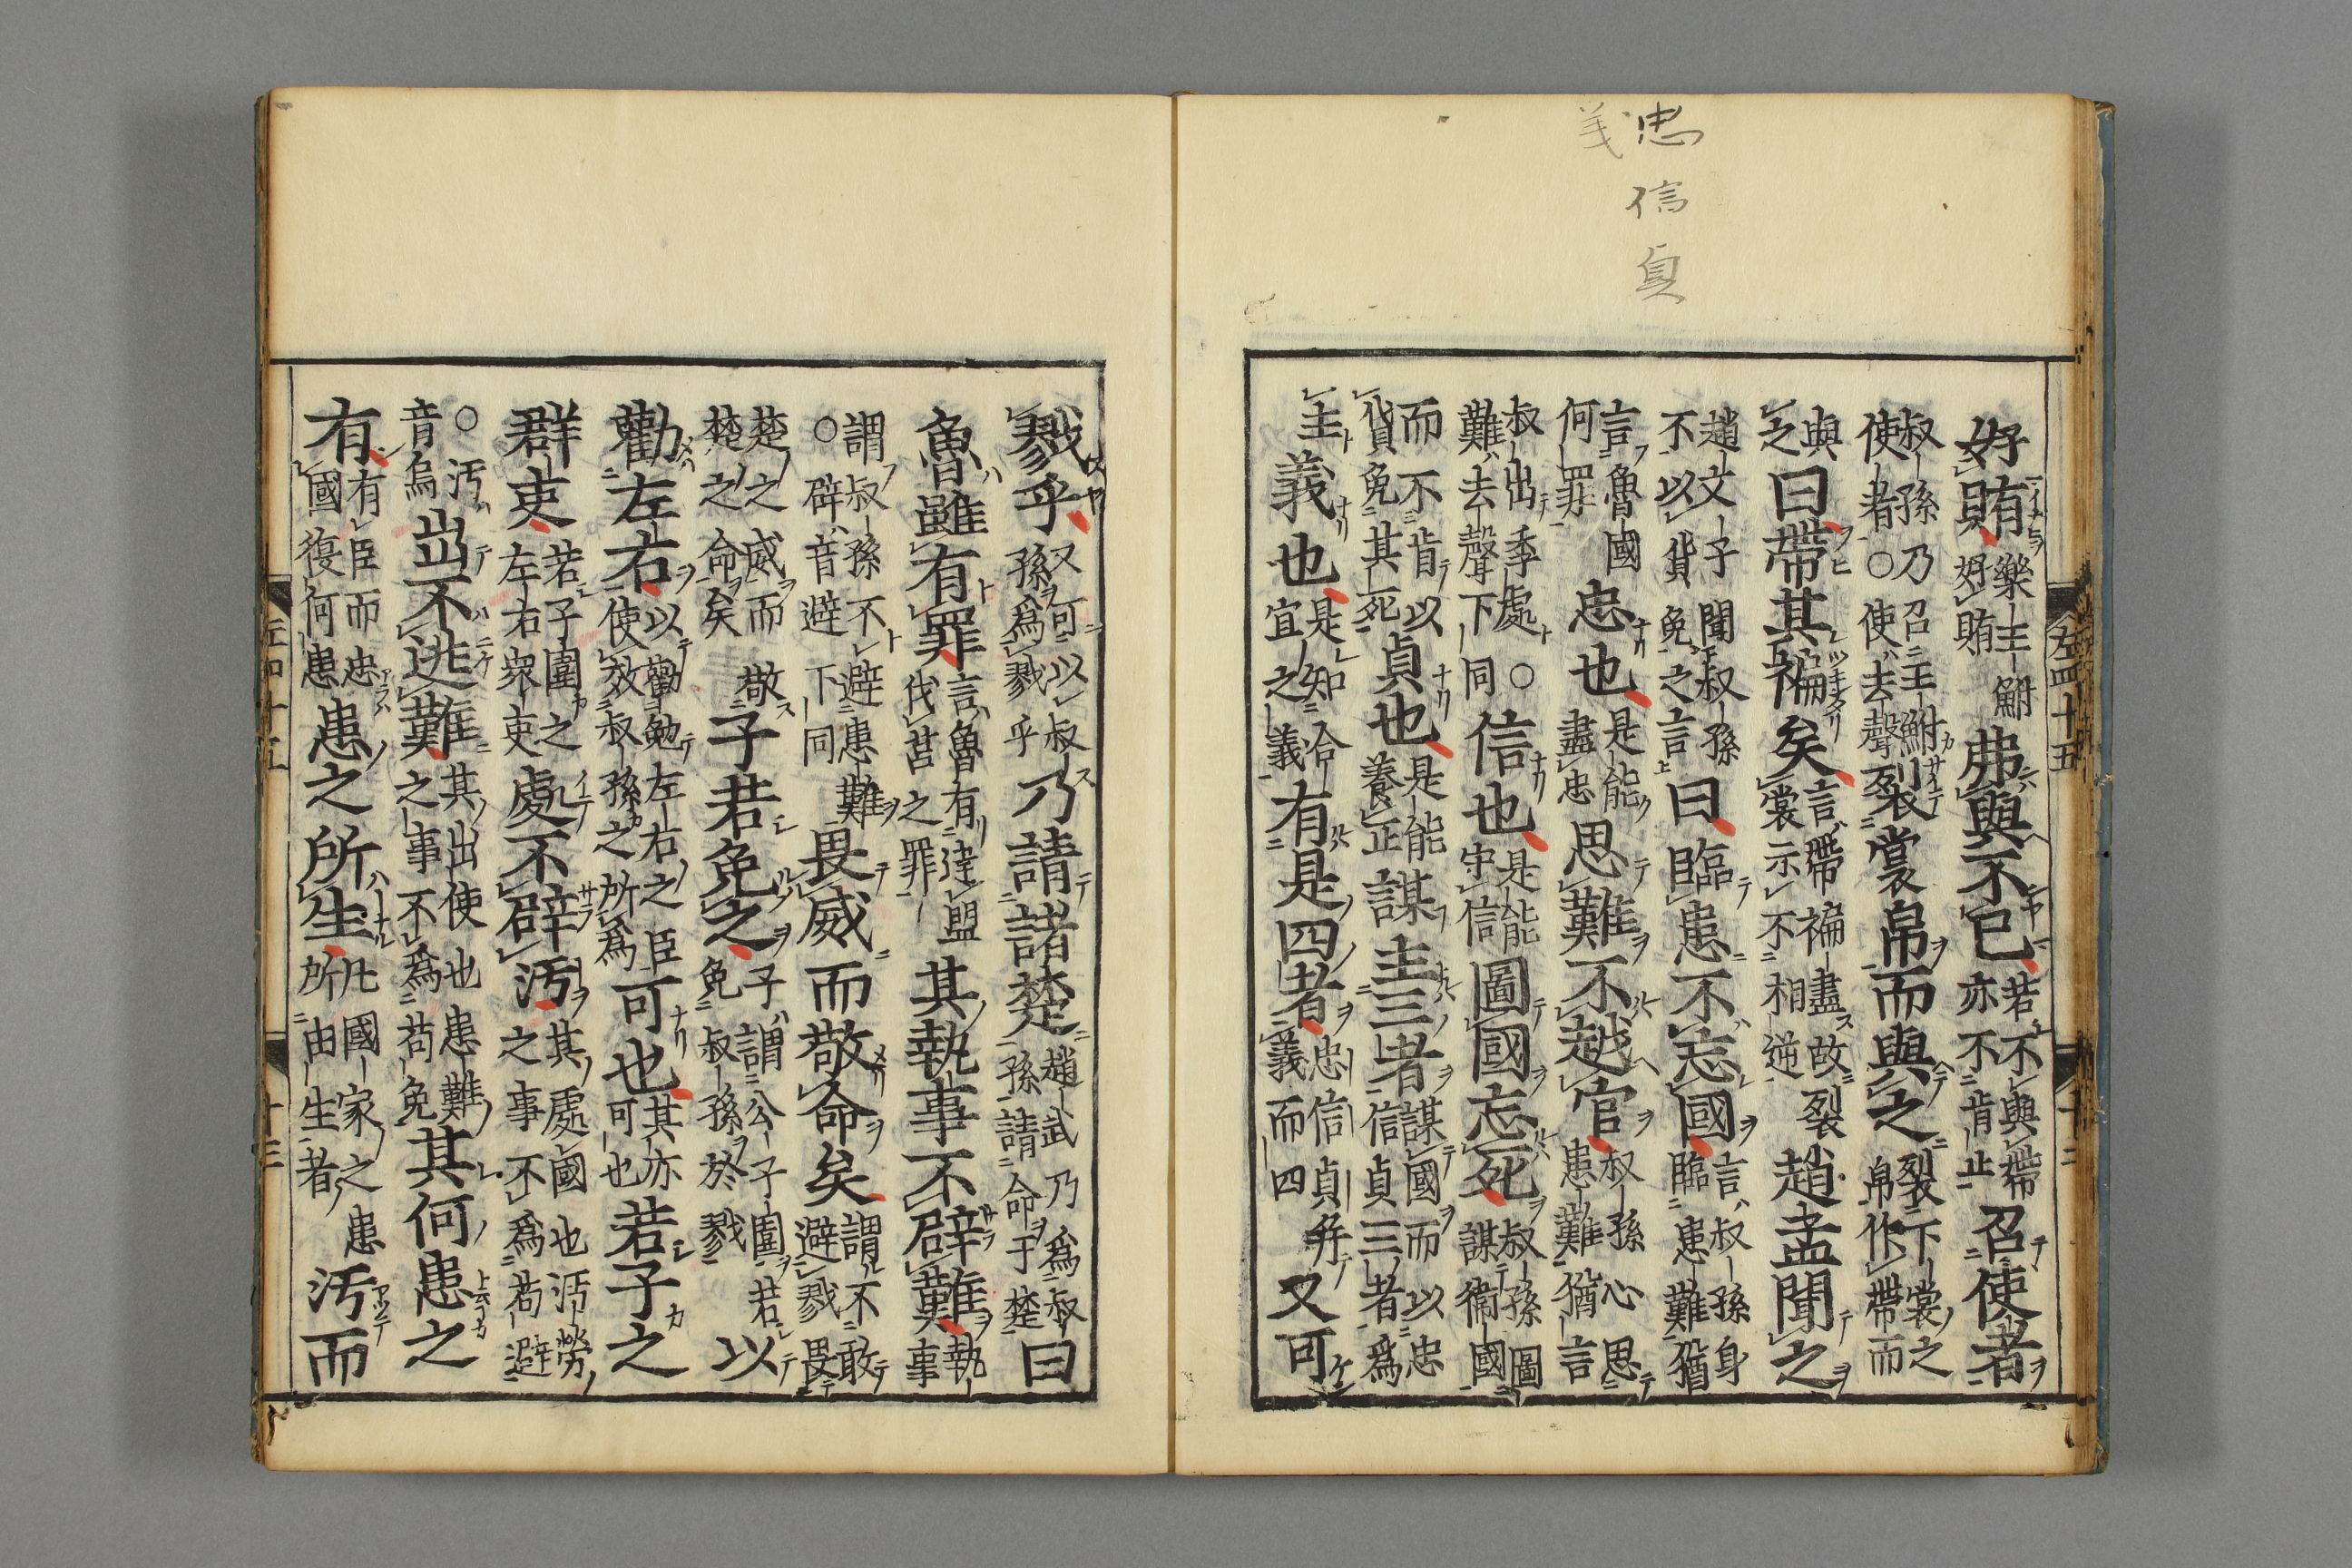 忠
義
信
貞
好賄樂王鮒好賄弗與不已若不與帶亦不肯止召使者
叔孫乃召王鮒使者○使去聲裂裳帛而與之裂下裳之帛作帶而
與之曰帶其褊矣言帶褊盡故裂裳示不相逆趙孟聞之
趙文子聞叔孫不以貨免之言曰臨患不忘國言叔孫身臨患難猶
言魯國何罪忠也是能盡忠思難不越官叔孫心思患難猶言
叔出季處○難去聲下同信也是能守信圖國忘死叔孫圖謀衛國
而不肯以貨免其死貞也是能養正謀主三者謀國而以忠信貞三者為
主義也是知合宜之義有是四者忠信貞并義而四又可
戮乎又可以叔孫為戮乎乃請諸楚趙武乃為叔孫請命于楚曰
魯雖有罪言魯有違盟伐莒之罪其執事不辟難執事
謂叔孫不避患難○辟音避下同畏威而敬命矣謂不敢避戮畏
楚之威而敬楚之命矣子若免之子謂公子圍若免叔孫於戮以
勸左右以勸勉左右之臣使效叔孫之所為可也其亦可也若子之
群吏若子圍之左右眾吏處不辟汚其處國也汚勞之事不為苟避
○汚音烏出不逃難其出使也患難之事不為苟免其何患之
有有臣而忠國復何患患之所生凡國家之患所由生者汚而
左四十五
十二
左四十五
十三